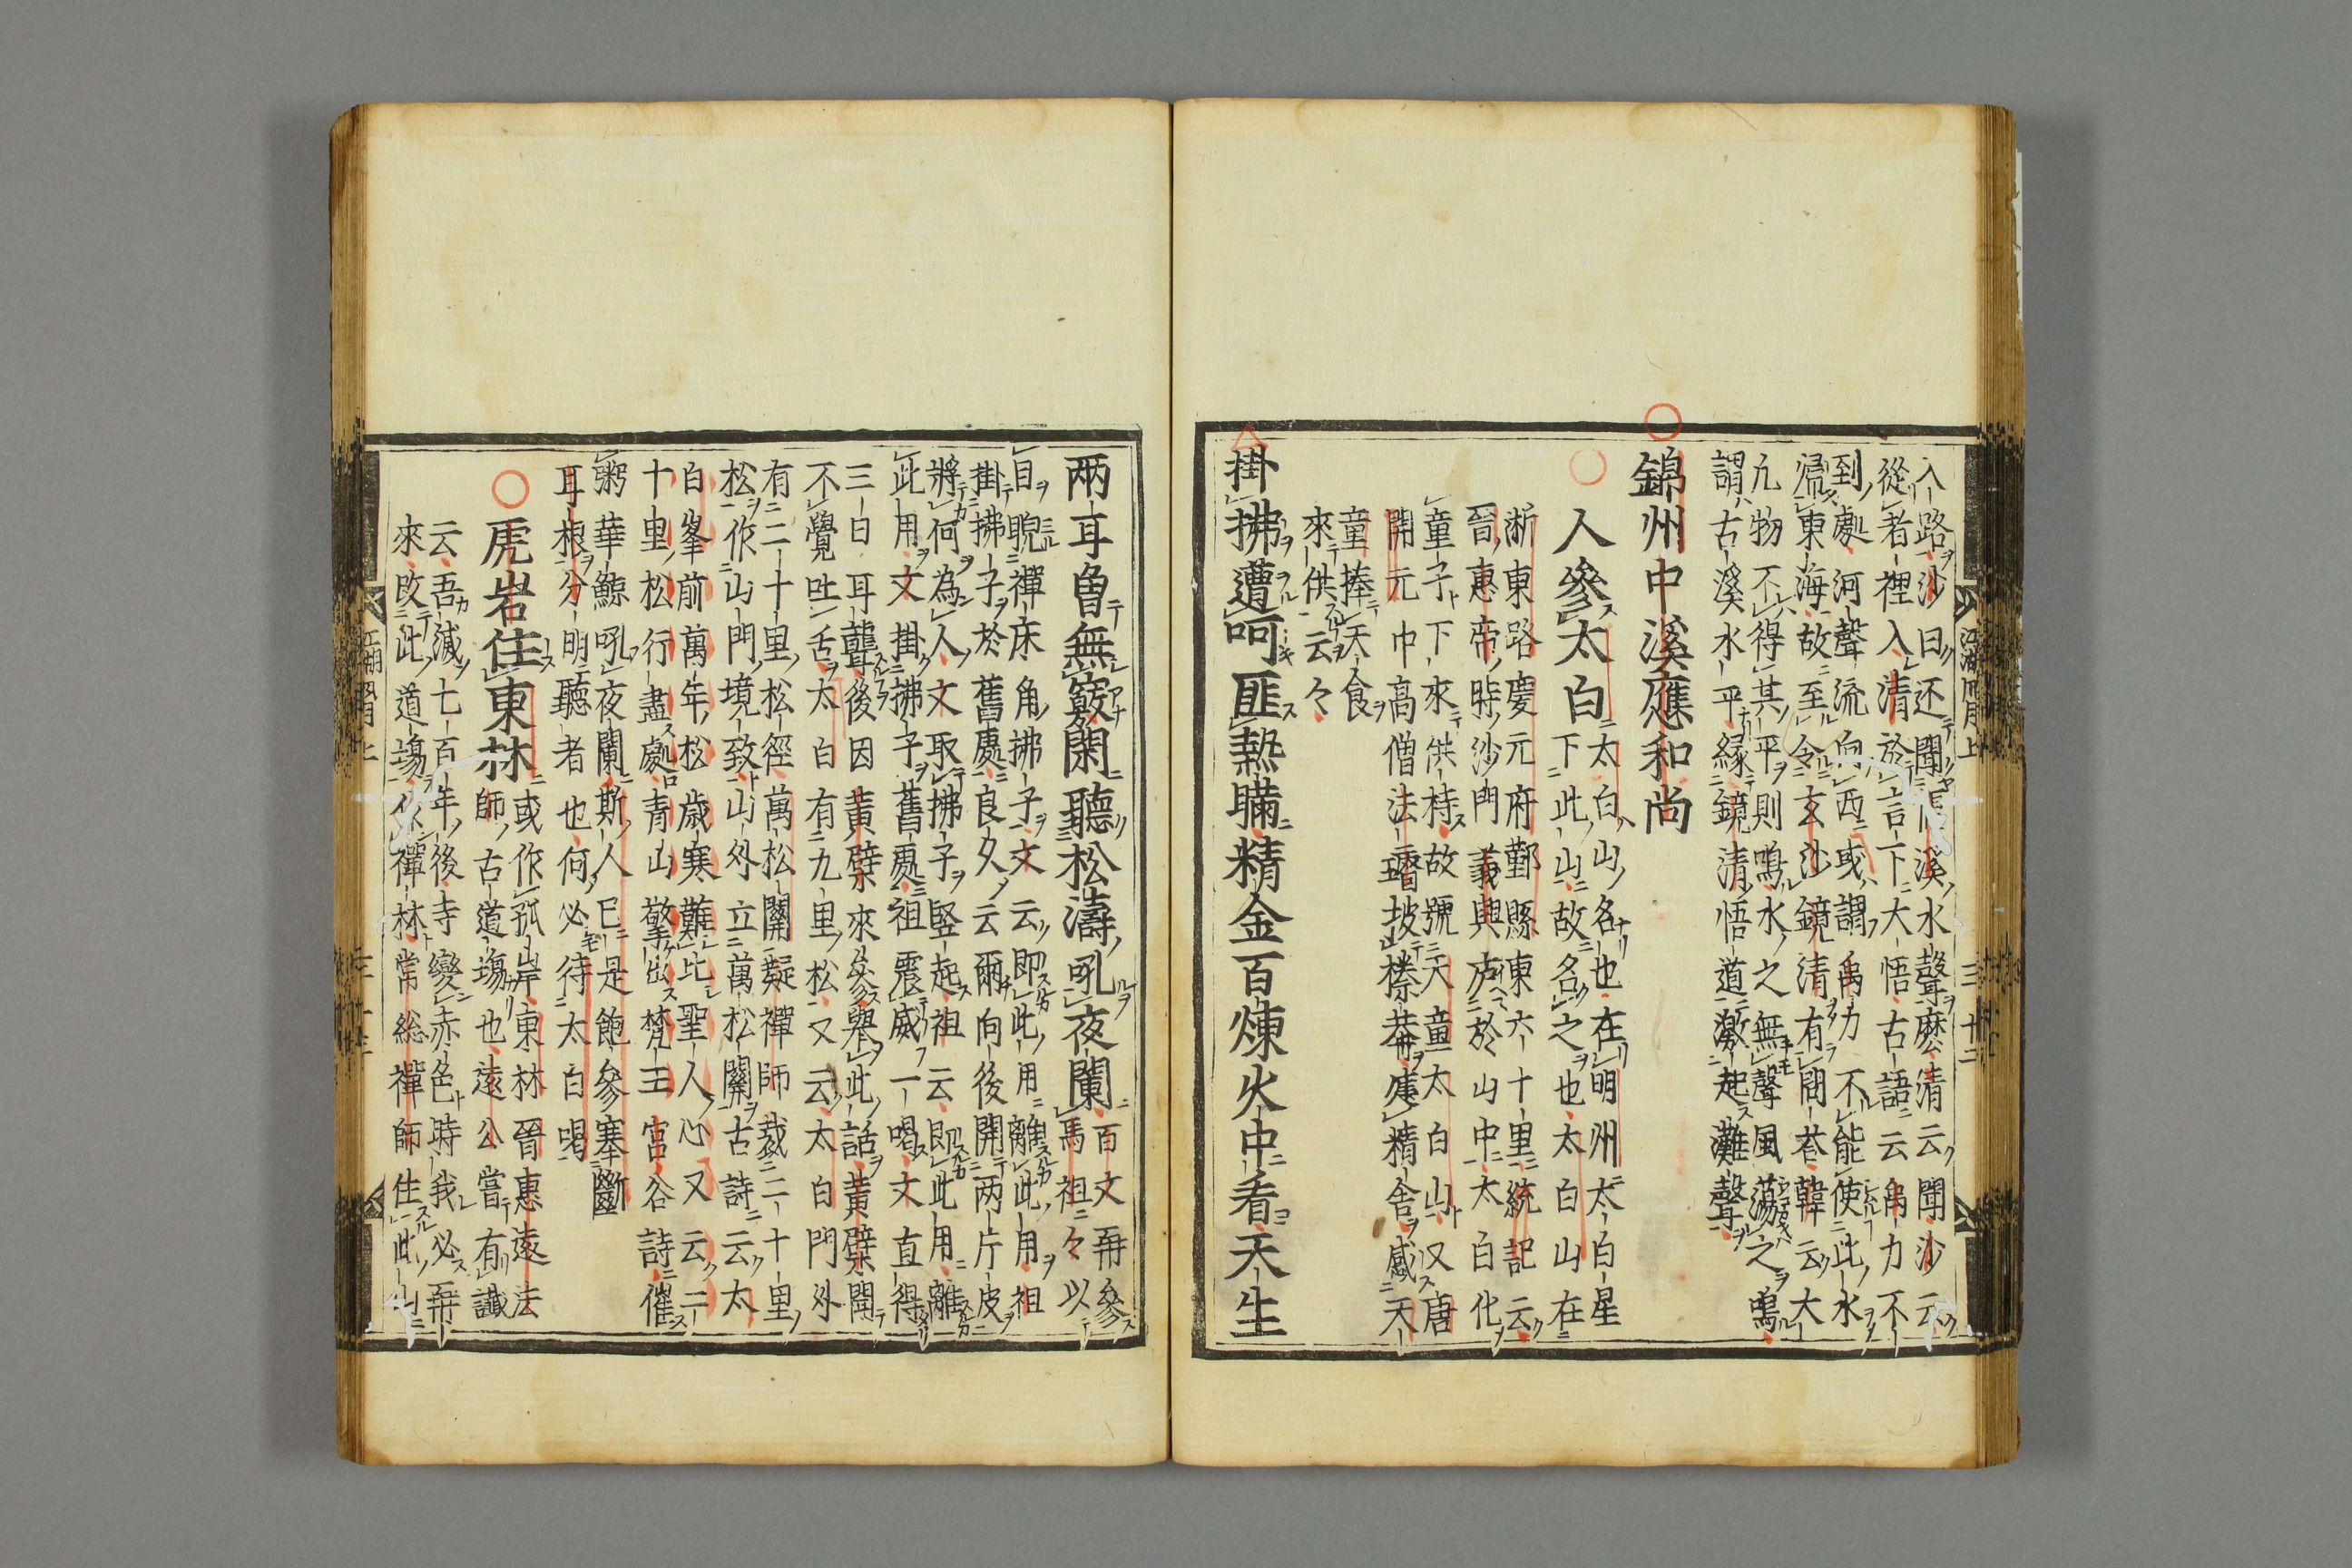 入路沙曰还聞偃溪水聲麽清云聞沙云
從者裡入清於言下大悟古語云禹力不
到處河聲流向西或謂禹力不能使此水
歸東海故至令玄沙鏡清有問荅韓云大
凢物不得其平則鳴水之無聲風蕩之鳴
謂古溪水平緣鏡清悟道激起灘聲
錦州中溪應和尚
人參太白
太白山名也在明州太白星
下此山故名之也太白山在
淅東路慶元府鄞縣東六十里統記云
晉惠帝時沙門義興於山中太白化
童子下來供持故號天童太白山又唐
開元中高僧法璿披榛莽建精舍感天
童捧天食
來供云々
掛拂遭呵匪熱瞞精金百煉火中看天生
江湖風月上
三十二
兩耳曾無竅閑聽松濤吼夜闌
百丈再參
馬祖々以
目睨禪床角拂子丈云即此用離此用祖
掛拂子於舊處良久云爾向後開两片皮
將何為人丈取拂子竪起祖云即此用離
此用丈掛拂子舊處祖震威一喝丈直得
三日耳聾後因黃檗來參舉此話黃檗聞
不覺吐舌太白有九里松又云太白門外
有二十里松徑萬松關疑禪師裁二十里
松作山門境致山外立萬松關古詩云太
白峯前萬年松歲寒難比聖人心又云二
十里松行盡處青山擎出梵王宮谷詩催
粥華鯨吼夜闌斯人巳是飽參塞斷
耳根分明聽者也何必待太白喝
虎岩住東林
或作孤岸東林晉惠遠法
師古道塲也遠公嘗有讖
云吾滅七百年後寺變赤色時我必再
來改此道塲作禪林常総禪師住此山